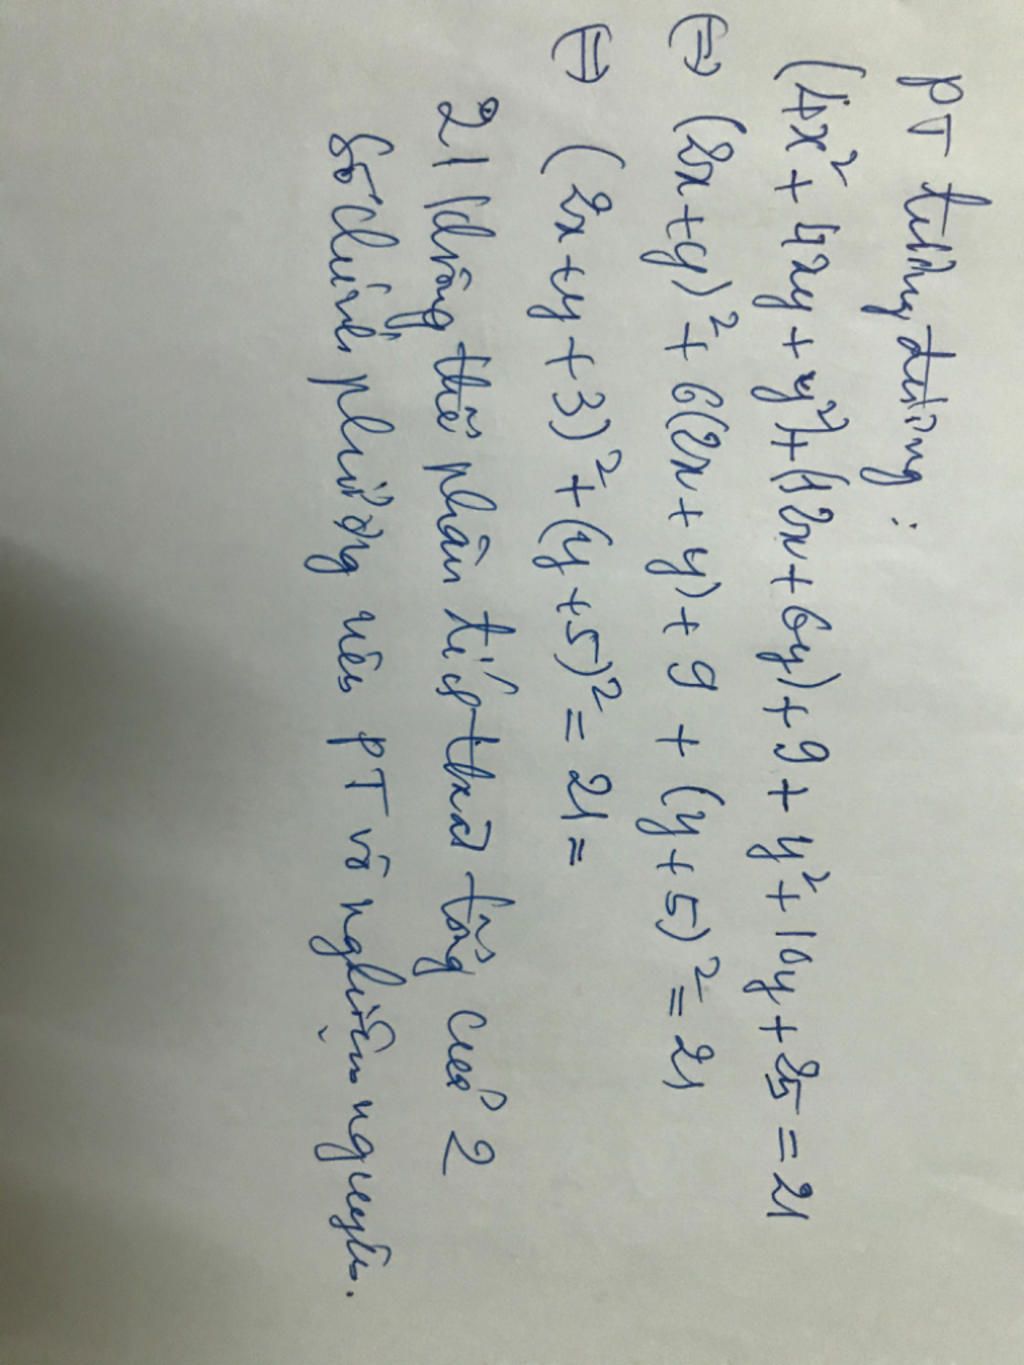 PT tương đương :
(4x² + 4xy + y²) + (12x + 6y) + 9 + y² + 10y + 25 = 21
(=) (2x + y)² + 6(2x + y) + 9 + (y + 5)² = 21
(=) (2x + y + 3)² + (y + 5)² = 21 =
21 không thể phân tích thành tổng của 2
số chính phương nên PT vô nghiệm nguyên.